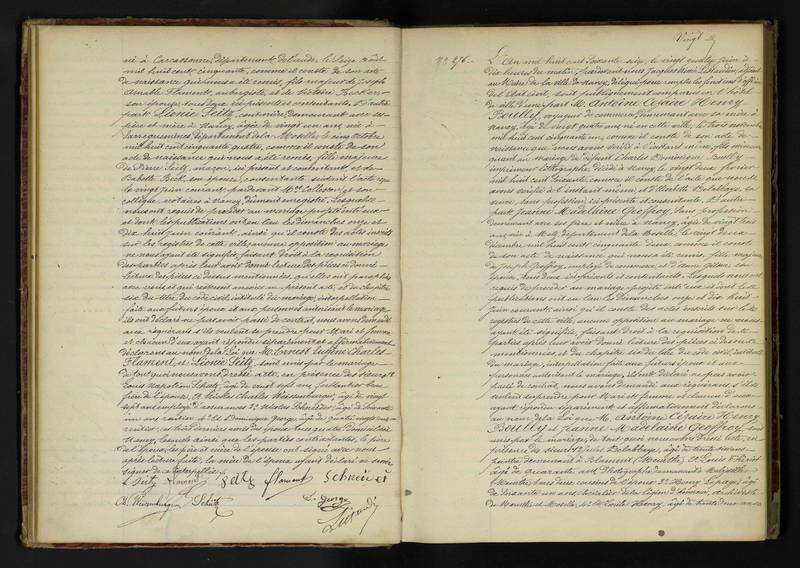 né à Carcassonne, département de l'aude, le Seize Août
mil huit cent cinquante, comme il conste de son acte
de naissance qui nous a été remis, fils majeur de Joseph
Amable Flament, aubergiste, et de Victoire
son épouse, tous deux représentés et consentants. D'autre
part Léonie Seitz, couturière, demeurant avec ses
père et mère à Nancy, âgée de vingt un ans, née à
Sarreguemines, département de la Moselle, le cinq Octobre
mil huit cent cinquante quatre, comme il conste de son
acte de naissance qui nous a été remis, fille majeure
de Pierre Seitz, maçon, ici présent et contentant, et de
Babette Beck, son épouse, consentante suivant l'acte reçu
le vingt juin courant, pardevant Me Collesson et son
collègue, notaires à Nancy, dûment enregistré. Lesquels
nous ont requis de procéder au mariage projeté entr'eux
et dont les publications ont eu lieu les dimanches onze et
dix huit juin courant, ainsi qu'il conste des actes inscrits
sur les registres de cette ville; aucune opposition au mariage
ne nous ayant été signifiée, faisant droit à la réquisition
des parties, après leur avoir donné lecture des pièces
lecture des pièces ci-dessus mentionnées, qu'elles ont paraphées
avec nous et qui resteront annexées au présent acte, et du chapitre
six du titre du code civil, intitulé du mariage, interpellation
faite aux futurs époux et aux personnes autorisant le mariage
ils ont déclaré ne pas avoir passé de contrat, nous avons demandé
aux requérans s'ils veulent se prendre pour Mari et femme
et chacun d'eux ayant répondu séparément et affirmativement
déclarons au nom de la Loi que M. Ernest Eugène Charles
Flament et Léonie Seitz, sont unis par le mariage
de tout quoi nous avons dressé acte, en présence des sieurs 1°
Louis Napoléon Schütz, âgé de vingt sept ans
frère de l'épouse, 2° Nicolas Charles Weissenburger, âgé de vingt
sept ans, employé d'assurances 3° Nicolas Schneider, âgé de
un ans, rentier 4° Et S. Dominique George, âgé de
rentier, ces trois derniers amis des époux, tous quatre domiciliés
à Nancy, lesquels ainsi que les parties contractantes, le père
et l'épouse, le père et mère de l'épouse ont signé avec nous
après lecture faite, la mère de l'époux ayant déclaré ne savoir
signer de ce interpellée.
L. Seitz Flament Seitz Flament Schneider
Ch. Weissenburger Schütz D. George
Vingt
N° 276.
L'An mil huit cent soixante seize, le vingt quatre juin à
dix heures du matin, pardevant nous
au Maire de la ville de Nancy, délégué pour remplir les fonctions d'officier
de l'Etat civil, sont publiquement comparus en l'hôtel
de ville d'une part M. Antoine Césaire Henry
Boully, voyageur de commerce, demeurant avec sa mère à
Nancy, âgé de vingt quatre ans, né en cette ville, le
mil huit cent cinquante un, comme il conste de son acte de
naissance que nous avons vérifié à l'instant même, fils
quant au mariage de défunt Charles Dominique Boully
imprimeur lithographe, décédé à Nancy, le vingt deux février
mil huit cent soixante, comme il conste de l'acte que nous
avons vérifié à l'instant même, et d'
veuve, sans profession, ici présente et consentante. D'autre
part Jeanne Madelaine Geoffroy, sans profession
demeurant avec ses père et mère à Nancy, âgée de vingt trois
ans, née à Metz, département de la Moselle, le vingt deux
décembre mil huit cent cinquante deux, comme il conste
de son acte de naissance qui nous a été remis, fille majeure
de Joseph Geoffroy, employé de commerce, et de
son épouse, tous deux ici présents et consentants. Lesquels nous ont
requis de procéder au mariage projeté entr'eux et dont les
publications ont eu lieu les dimanches onze et dix huit
juin courant, ainsi qu'il conste des actes inscrits sur les
registres de cette ville, aucune opposition au mariage ne nous
ayant été signifiée, faisant droit à la réquisition des
parties, après leur avoir donné lecture des pièces ci dessus
mentionnées, et du chapitre six du titre du code civil, intitulé
du mariage, interpellation faite aux futurs époux et aux
personnes autorisant le mariage, ils ont déclaré ne pas avoir
passé de contrat, nous avons demandé aux requérans, s'ils
veulent se prendre pour Mari et femme et chacun d'eux
ayant répondu séparément et affirmativement déclarons
au nom de la Loi que M. Antoine Césaire Henry
Boully et Jeanne Madelaine Geoffroy, sont
unis par le mariage, de tout quoi nous avons dressé acte, en
présence des sieurs 1° Jules
rentier, demeurant à Blamont, Meurthe, 2° Louis
âgé de quarante ans, Photographe demeurant à
Meurthe, tous deux cousins de l'époux 3° Henry Lepage, âgé
de soixante un ans, chevalier de la Légion d'honneur, archiviste
de Meurthe et Moselle, 4° Et Emile Henry, âgé de trente deux ans